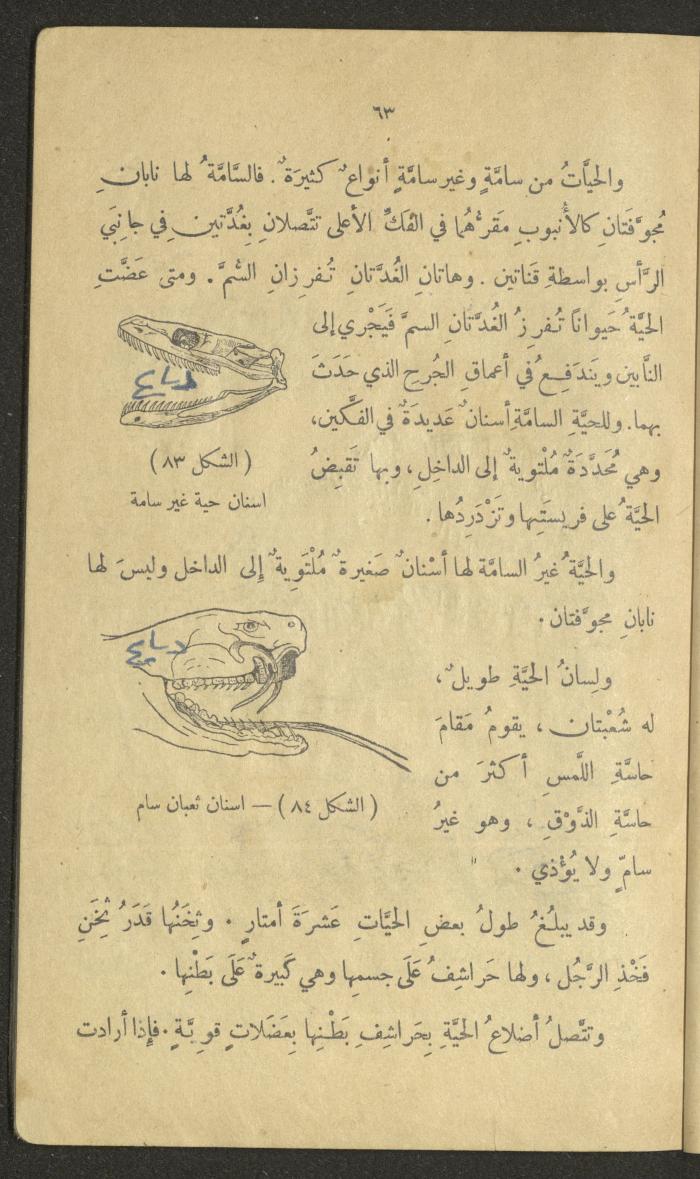 ٦٣
والحيَّاتُ من سامَّةٍ وغير سامَّةٍ أنواعٌ كثيرَةٌ. فالسَّامَّةُ لها نابانِ
مُجوَّفَتَانِ كالأُنبوبِ مَقرُّهُما في الفَكِّ الأعلى تتَّصلانِ بِغُدَّتينِ في جانِبَي
الرَّأسِ بواسطةِ قَناتين. وهاتانِ الغُدَّتانِ تُفرِزانِ السُّمَّ. ومتى عَضَّتِ
الحيَّةُ حَيوانًا تُفرِزُ الغُدَّتانِ السمَّ فَيَجْري إلى
النَّابين ويَندَفِعُ في أعماقِ الجُرحِ الذي حَدَثَ
بهما. وللحيَّةِ السامَّةِ أسنانٌ عَديدَةٌ في الفكَّين،
وهي مُحَدَّدَةٌ مُلْتوِيةٌ إلى الداخِلِ، وبها تَقبِضُ
الحيَّةُ على فريستَِها وتَزْدَرِدُها.
(الشكل ٨٣)
اسنان حية غير سامة
والحيَّةُ غيرُ السامَّة لها أسْنانٌ صَغيرةٌ مُلْتَوِيةٌ إلى الداخل وليسَ لها
نابانِ مجوَّفتان.
ولِسانُ الحيَّةِ طويلٌ،
له شُعْبتان، يقومُ مَقامَ
حاسَّةِ اللَّمسِ أكثرَ من
حاسَّةِ الذَّوْقِ، وهو غيرُ
سامّ ولا يُؤْذي.
(الشكل ٨٤) — اسنان ثعبان سام
وقد يبلُغُ طولُ بعضِ الحيَّاتِ عَشرَةَ أمتارٍ. وثِخَنُها قَدَرُ ثِخَنِ
فَخْذِ الرَّجُل، ولها حَراشِفُ عَلَى جسمِها وهي كَبيرةٌ عَلَى بَطْنِها.
وتتَّصلُ أضلاعُ الحيَّةِ بِحَراشِفِ بَطْنِها بِعَضَلاتٍ قويَّةٍ. فإذا أرادت